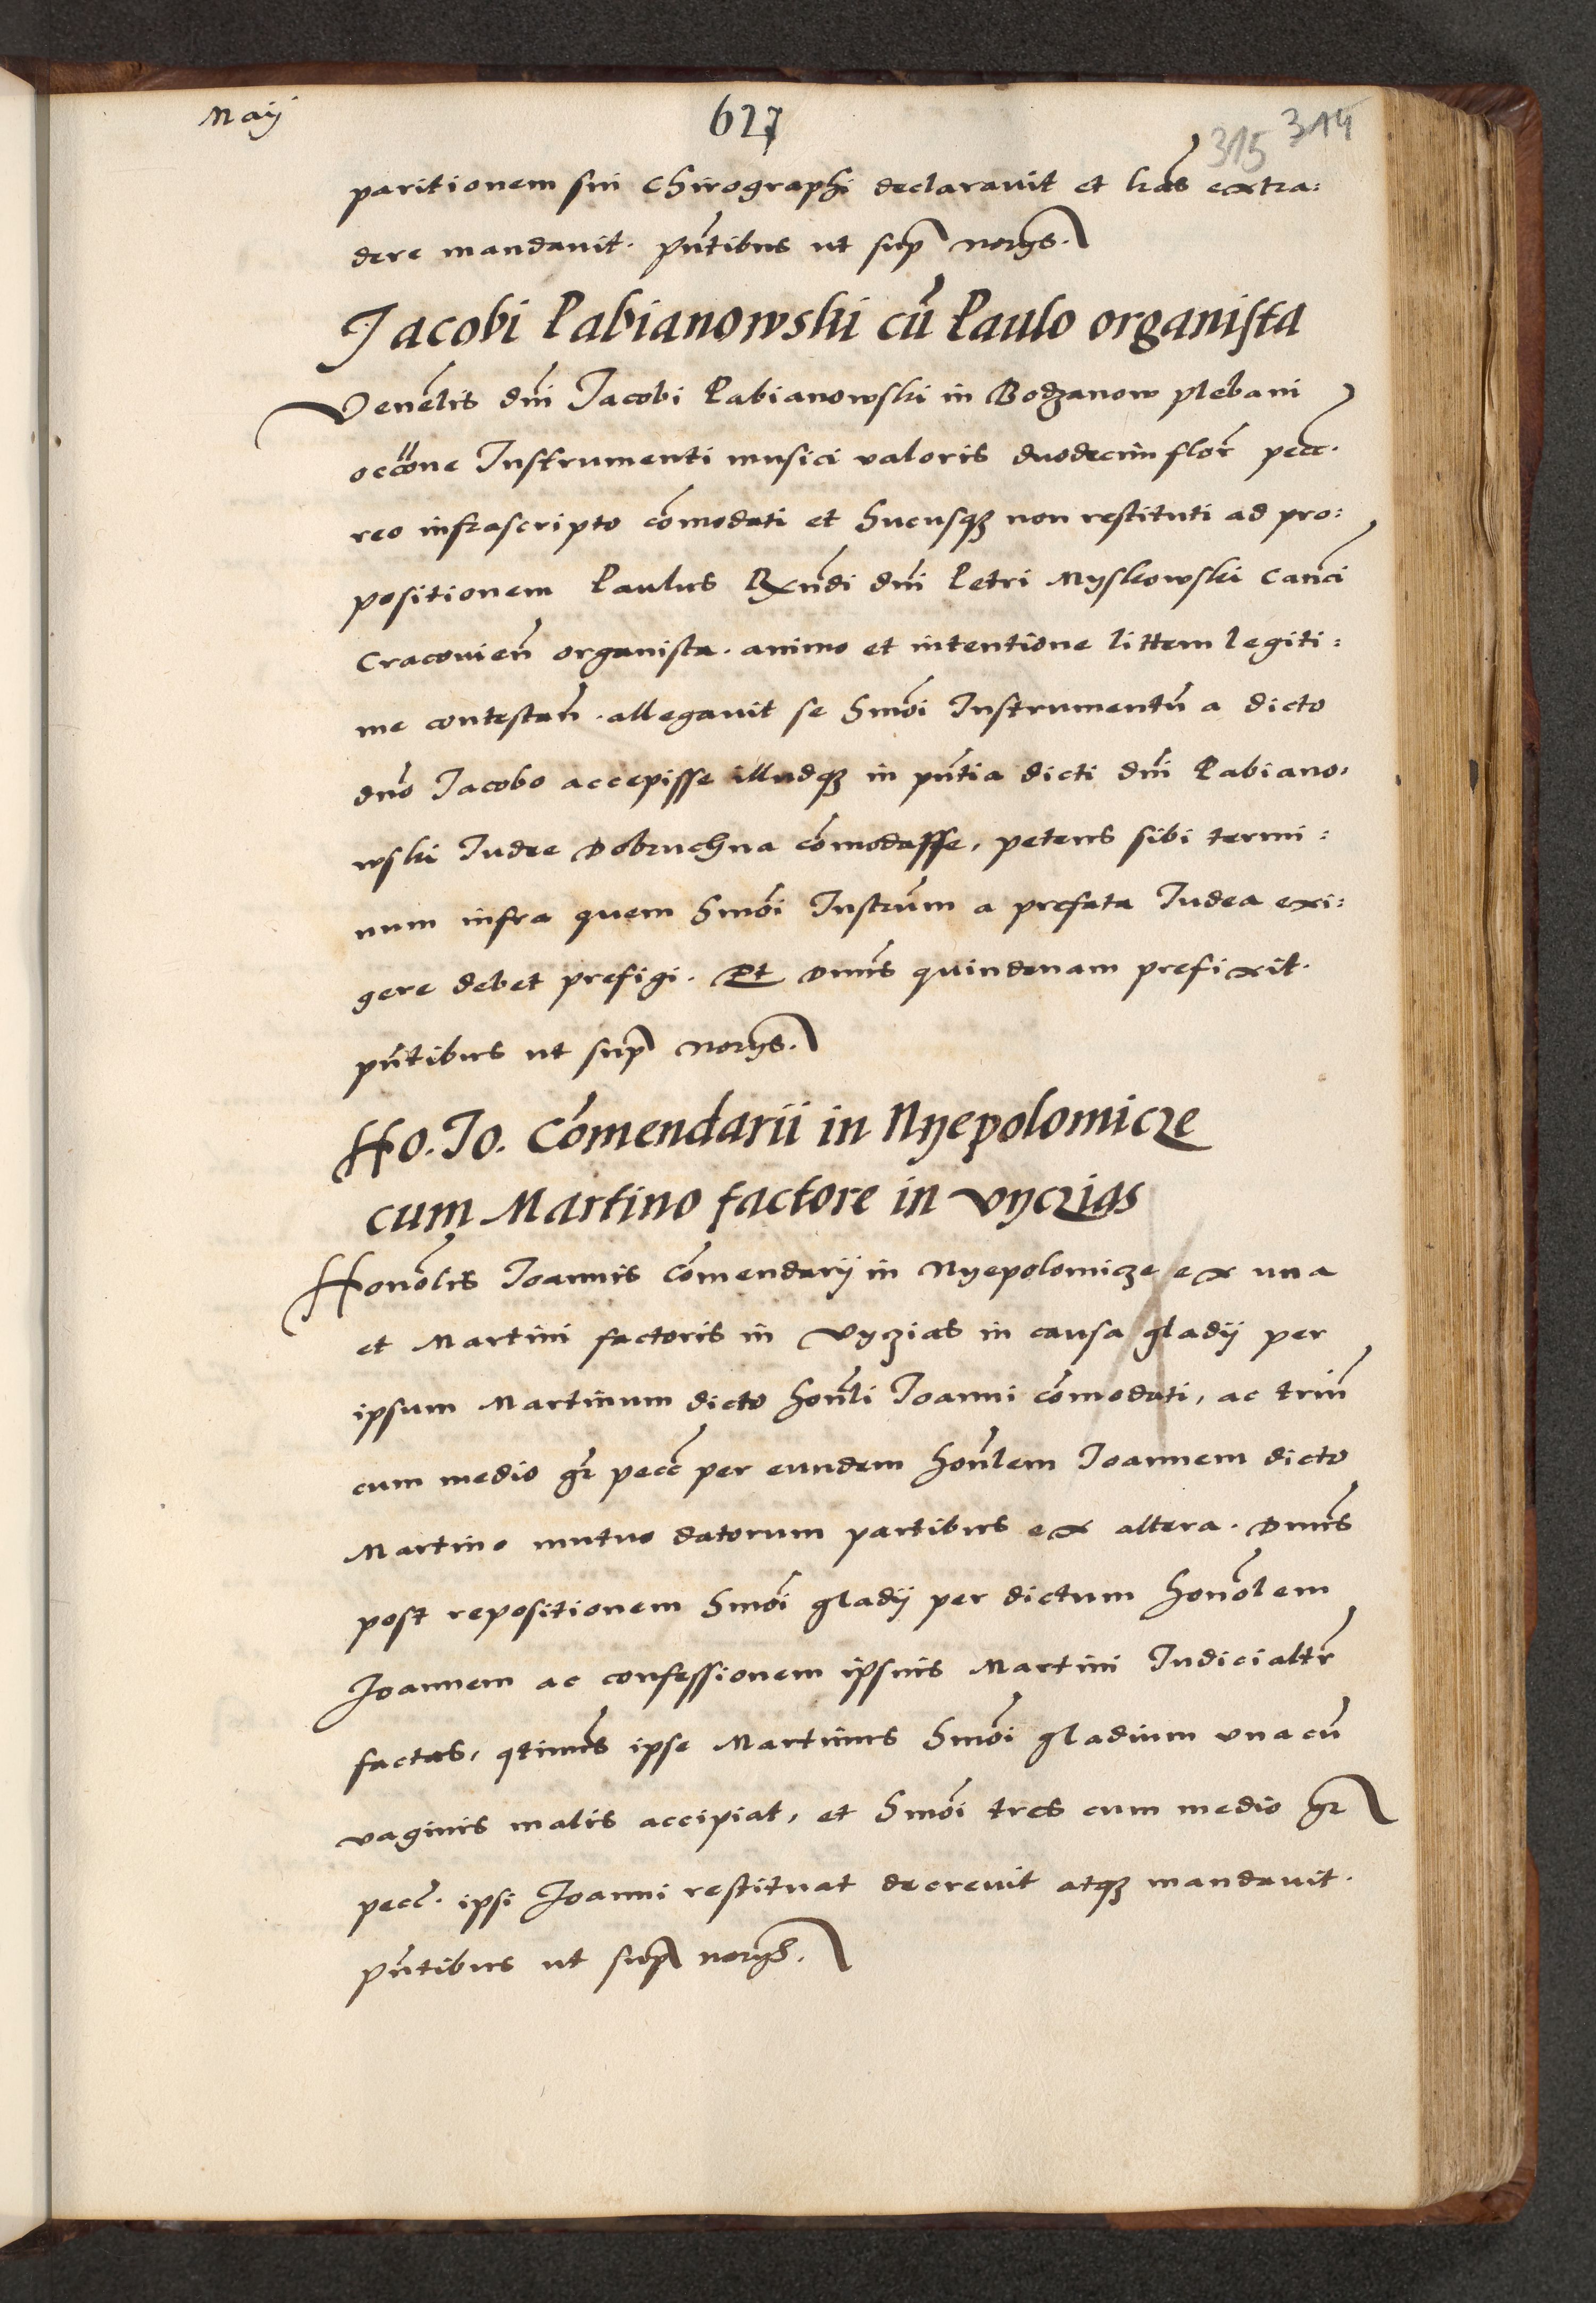 Maij
627
315 314
paritionem sui Chirographi declaravit et lras extra:
dere mandavit. pntibus ut sup norijs.
Jacobi Pabianowski cū Paulo organista
Venelis dni Jacobi Pabianowski in Bodzanow plebani
occōne Instrumenti musici valoris duodecim flor pecc.
reo infrascripto cōmodati et hucusqz non restituti ad pro:
positionem Paulus Rxndi dni Petri Myskowski Canci
Cracovien organista. animo et intentione littem legiti:
me contestan. allegavit se hmōi Instrumentū a dicto
dno Jacobo accepisse illudqz in pntia dicti dni Pabiano,
wski Iudee Dobruchna cōmodasse, petens sibi termi:
num infra quem hmōi Instrūm a prefata Iudea exi:
gere debet prefigi. Et Dnus quindenam prefixit.
pntibus ut sup norijs.
Ho. Jo. Cōmendarii in Nyepolomicze
cum Martino factore in vyczias
Honolis Joannis Cōmendarij in Nyepolomicze ex una
et Martini factoris in vyczias in causa gladij per
ipsum Martinum dicto honli Joanni cōmodati, ac triū
cum medio gr pecc per eundem honlem Joannem dicto
Martino mutuo datorum partibus ex altera. Dnus
post repositionem hmōi gladij per dictum honolem
Joannem ac confessionem ipsius Martini Judicialtr
factas, qtinus ipse Martinus hmōi gladium una cū
vaginis malis accipiat, et hmōi tres cum medio gr
pecc. ipsi Joanni restituat decrevit atqz mandavit.
pntibus ut sup norijs.